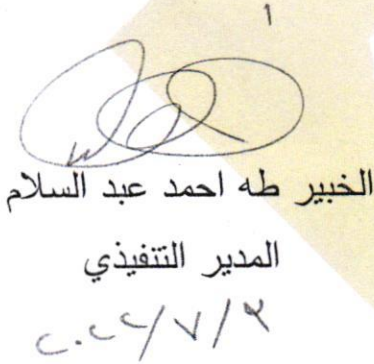 ١
الخبير طه احمد عبد السلام
المدير التنفيذي
٢٠٢٢/٧/٣